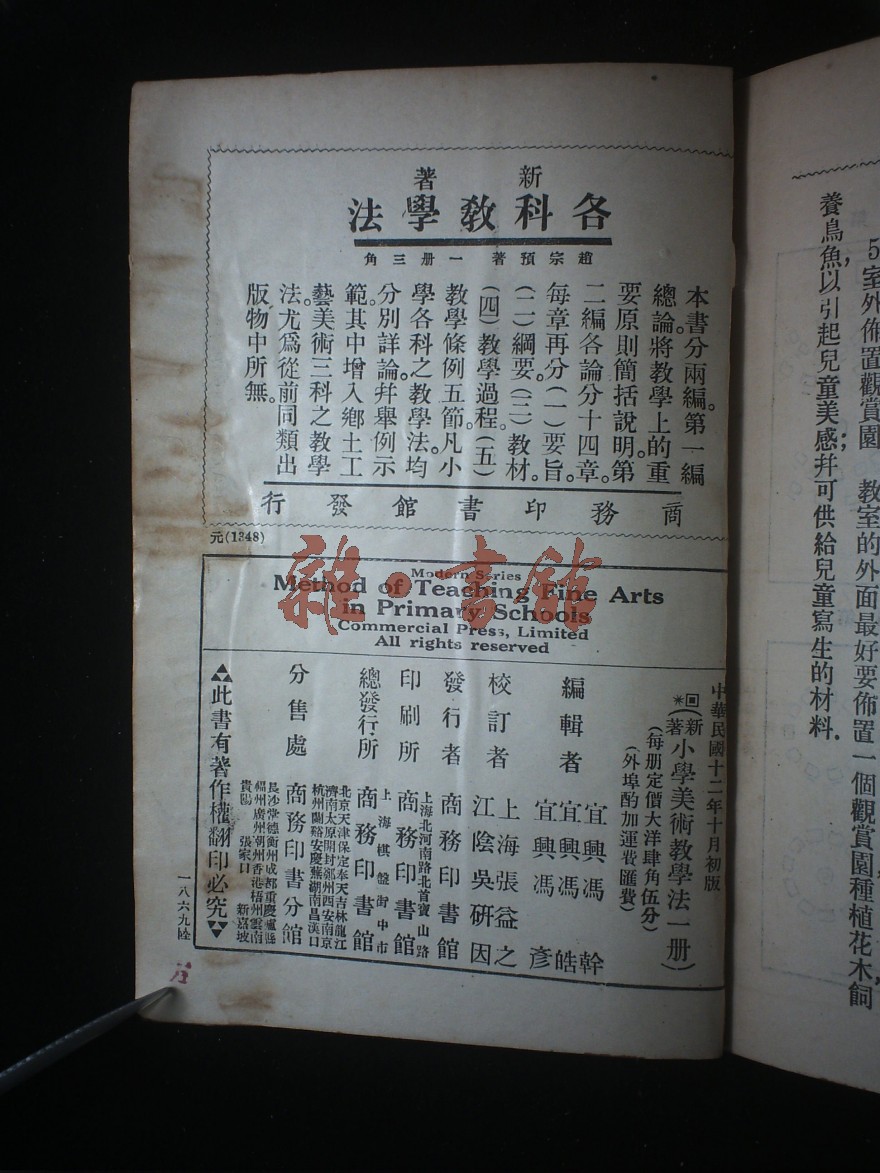 養鳥魚，以引起兒童美感，幷可供給兒童寫生的材料．
5室外佈置觀賞園　教室的外面最好要佈置一個觀賞園，種植花木，飼
新著
各科教學法
趙宗預著 一册三角
本書分兩編。第一編
總論。將教學上的重
要原則簡括說明。第
二編各論分十四章。
每章再分（一）要旨。
（二）綱要。（三）教材。
（四）教學過程。（五）
教學條例五節。凡小
學各科之教學法。均
分別詳論。幷舉例示
範。其中增入鄉土工
藝美術三科之教學
法。尤爲從前同類出
版物中所無。
商務印書館發行
元(1348)
Modern Series
Method of Teaching Fine Arts
in Primary Schools
Commercial Press, Limited
All rights reserved
中華民國十二年十月初版
（新著）小學美術教學法一册
（每册定價大洋肆角伍分）
（外埠酌加運費匯費）
編輯者 宜興馮幹
宜興馮皓
宜興馮彥
校訂者 上海張益之
江陰吳研因
發行者 商務印書館
印刷所 上海北河南路北首寶山路
商務印書館
總發行所 上海棋盤街中市
商務印書館
分售處 北京天津保定奉天吉林龍江
濟南太原開封鄭州西安南京
杭州蘭谿安慶蕪湖南昌漢口
商務印書分館
長沙常德衡州成都重慶瀘縣
福州廣州潮州香港梧州雲南
貴陽 張家口 新嘉坡
此書有著作權翻印必究
一八六九
雜·書館